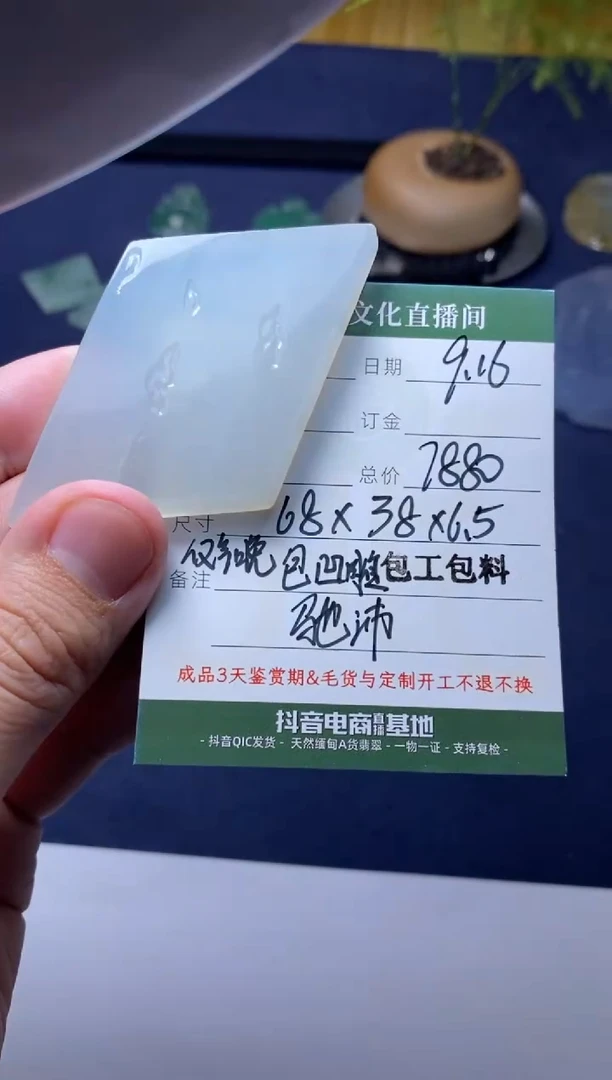 文化直播间
日期 9.16
订金
总价 7880
尺寸 68 x 38 x 6.5
仅今晚 包凹雕包工包料
备注
驰沛
成品3天鉴赏期&毛货与定制开工不退不换
抖音电商直播基地
- 抖音QIC发货 - 天然缅甸A货翡翠 - 一物一证 - 支持复检 -